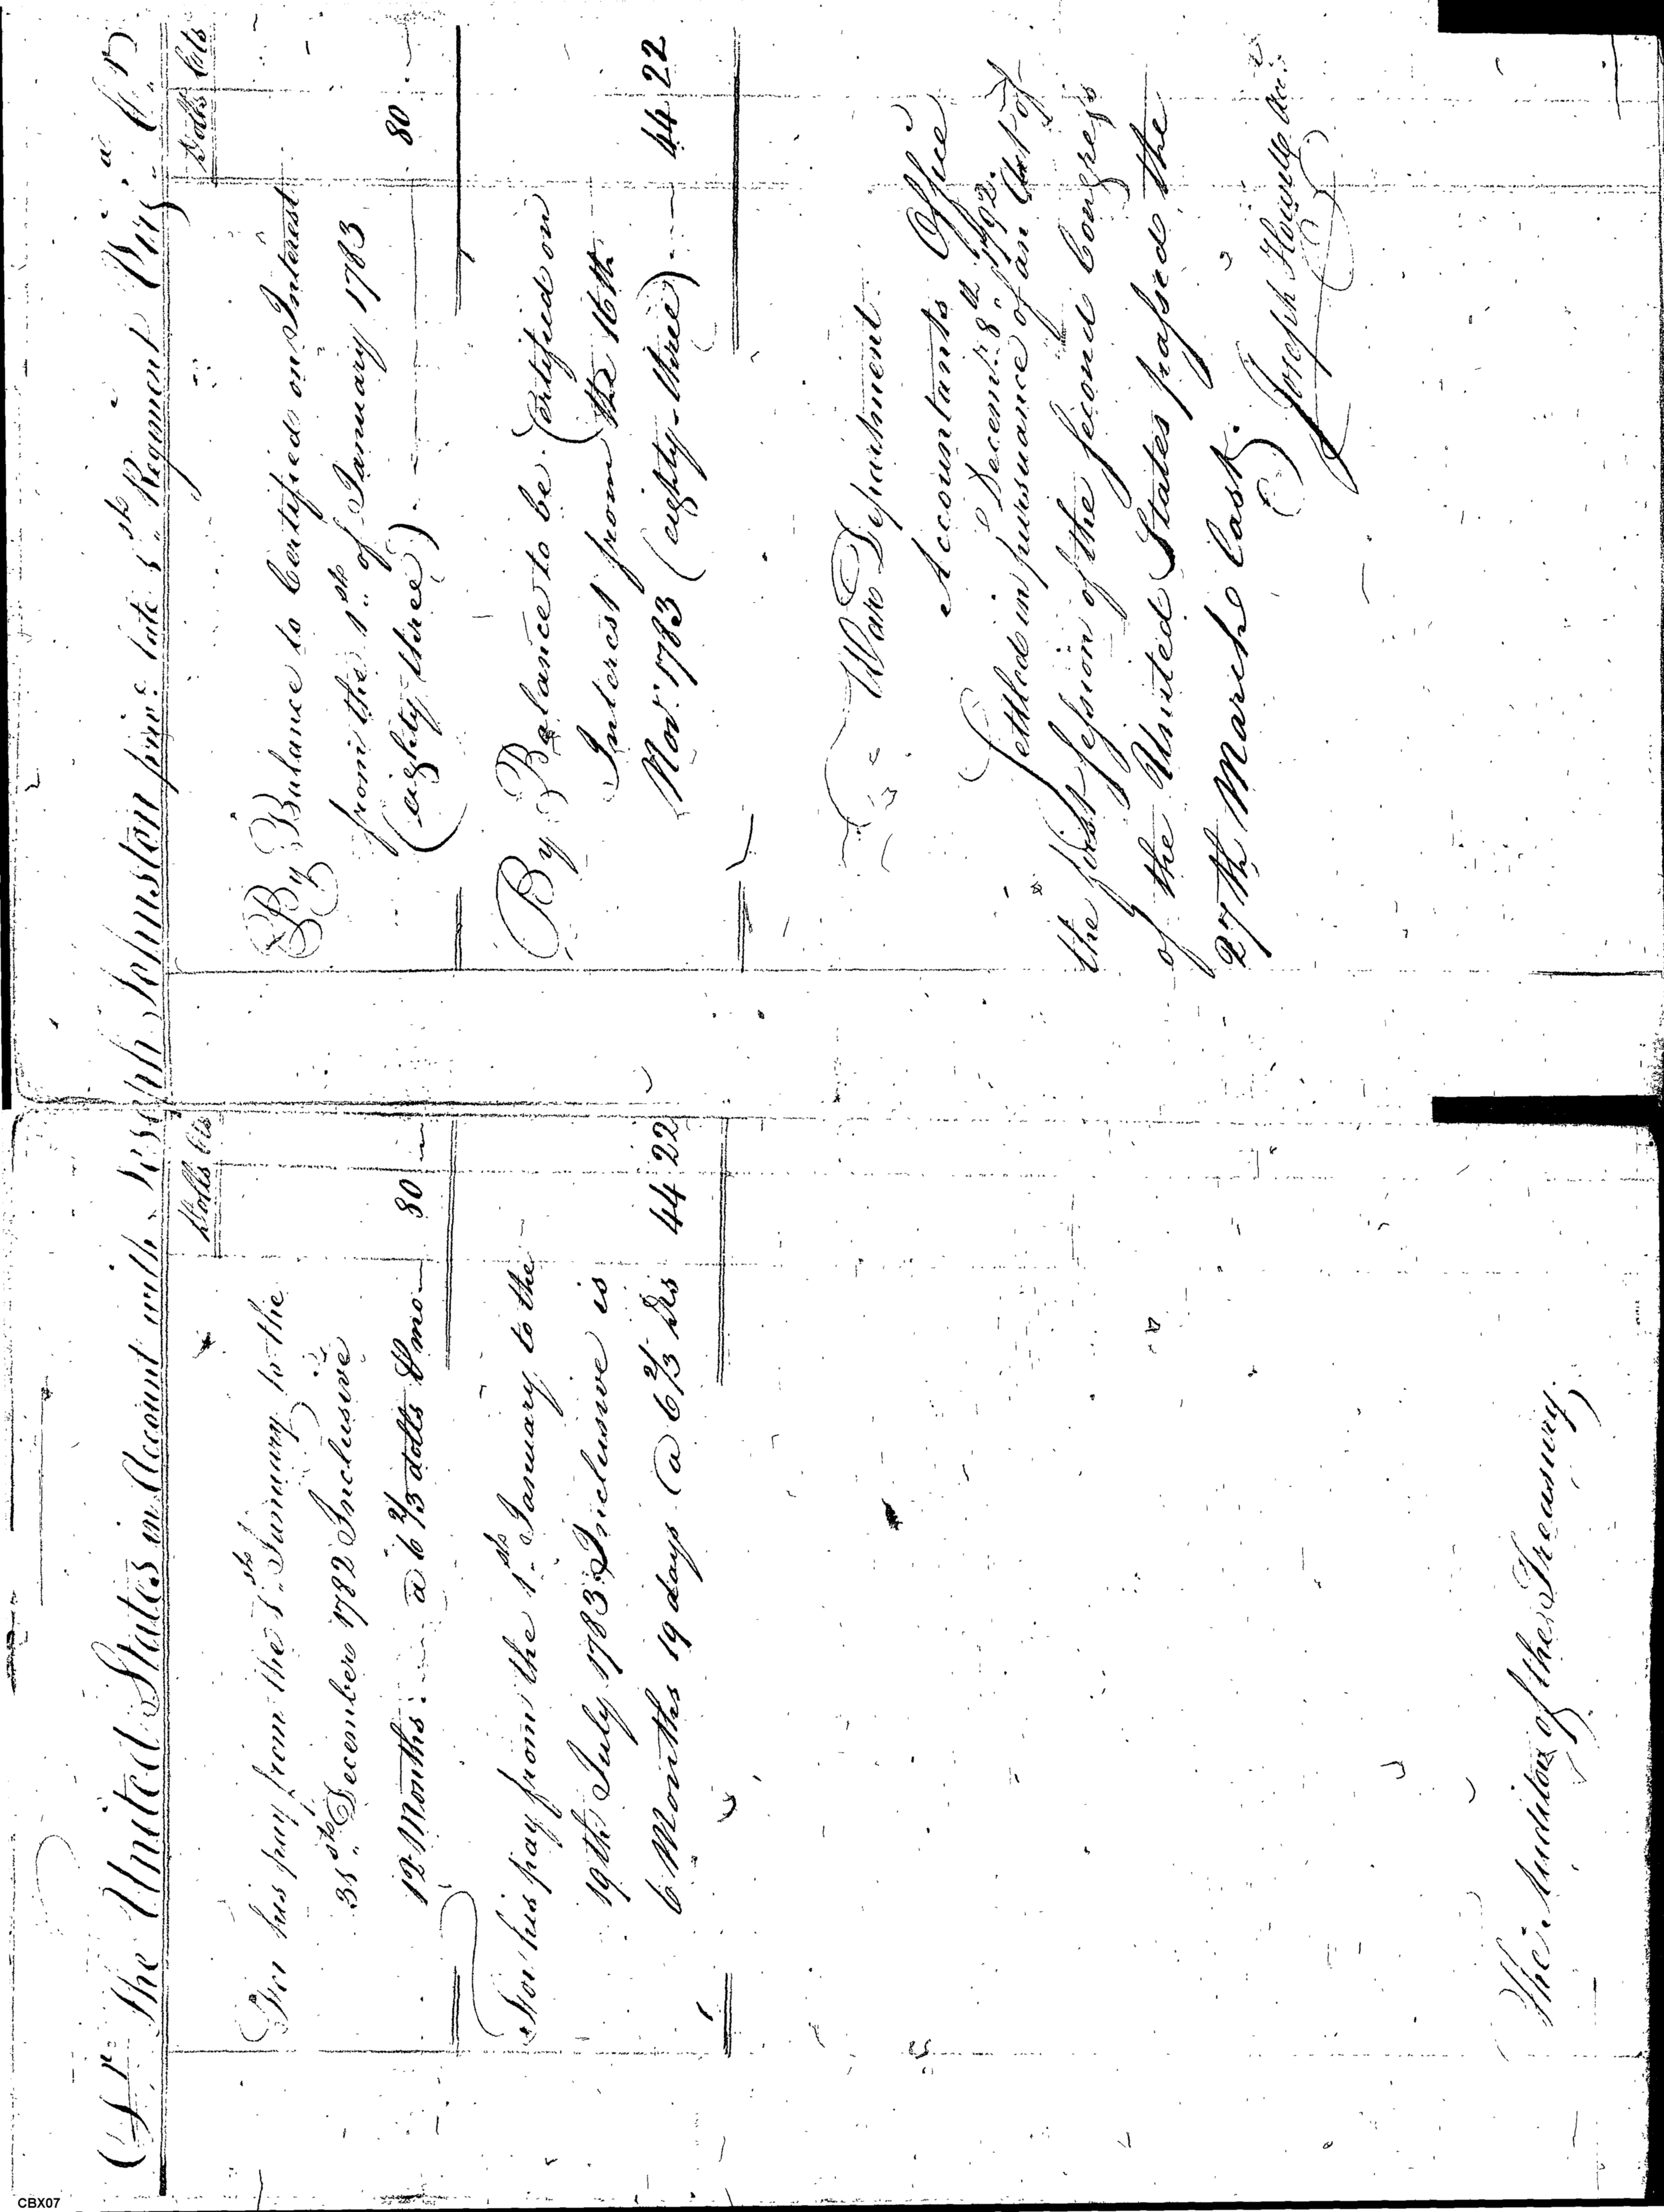 Dr. The United States in Account with Joseph Johnston priv.t late 1st Regiment Virg.a Cr
Dolls Cts
For his pay from the 1st January to the
31st December 1782 Inclusive
12 Months a 6 2/3 dolls P mo 80
For his pay from the 1st January to the
19th July 1783 Inclusive is
6 Months 19 days @ 6 2/3 Drs 44 22
The Auditor of the Treasury.
Dolls Cts
By Balance to Certified on Interest
from the 1st of January 1783
(eighty three) 80
By Balance to be Certified on
Interest from the 16th
Nov.r 1783 (eighty-three) 44 22
War Department
Accountants Office
Decem.r 8th 1792.
Settled in pursuance of an Act of
the first session of the second Congress
of the United States passed the
27th March last.
Joseph Howell
CBX07